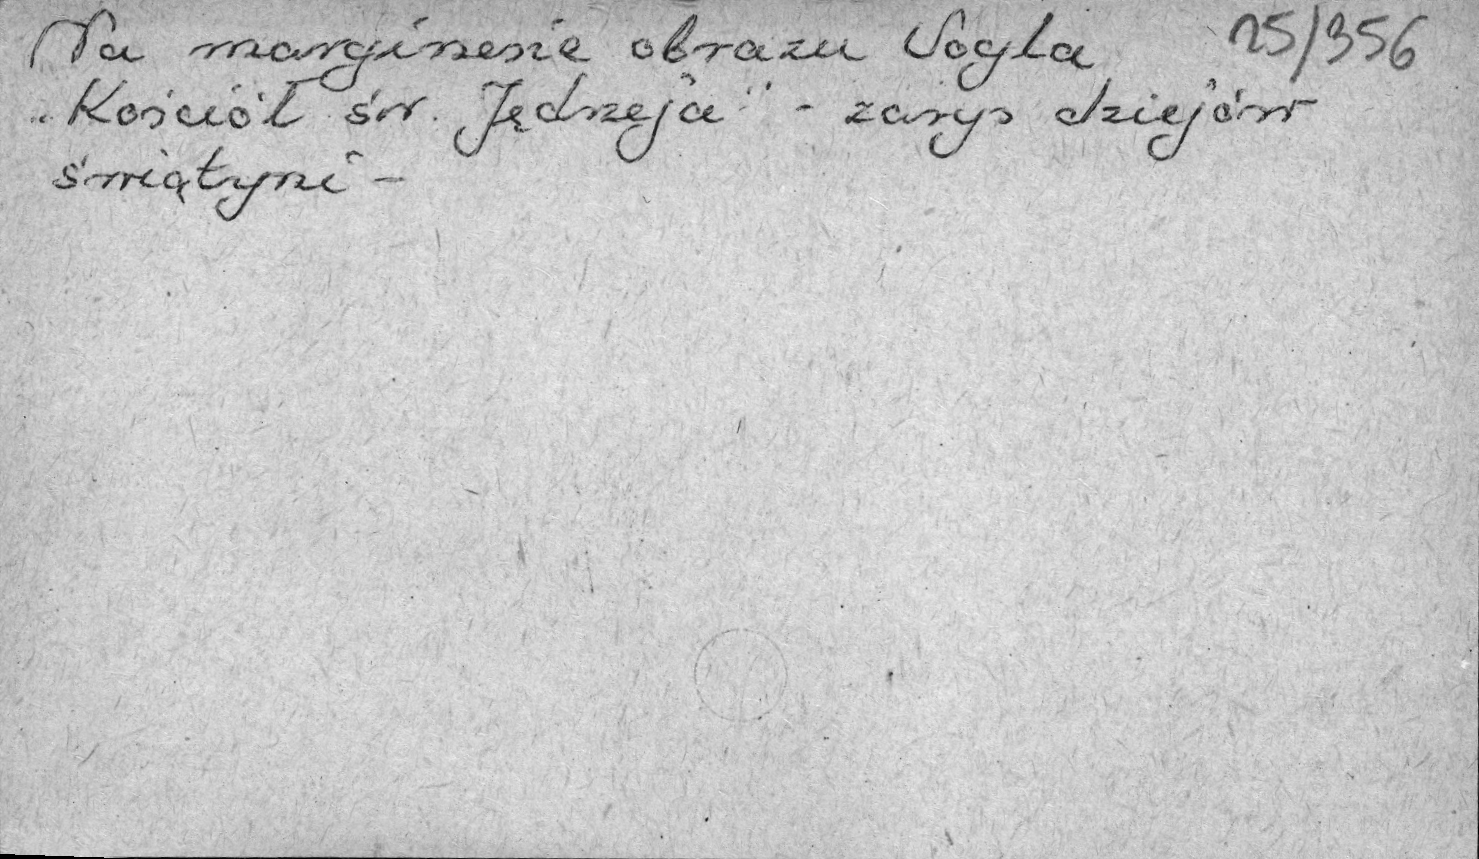 Na marginesie obrazu Vogla 25/356
„Kościół św. Jędrzeja" - zarys dziejów
świątyni -